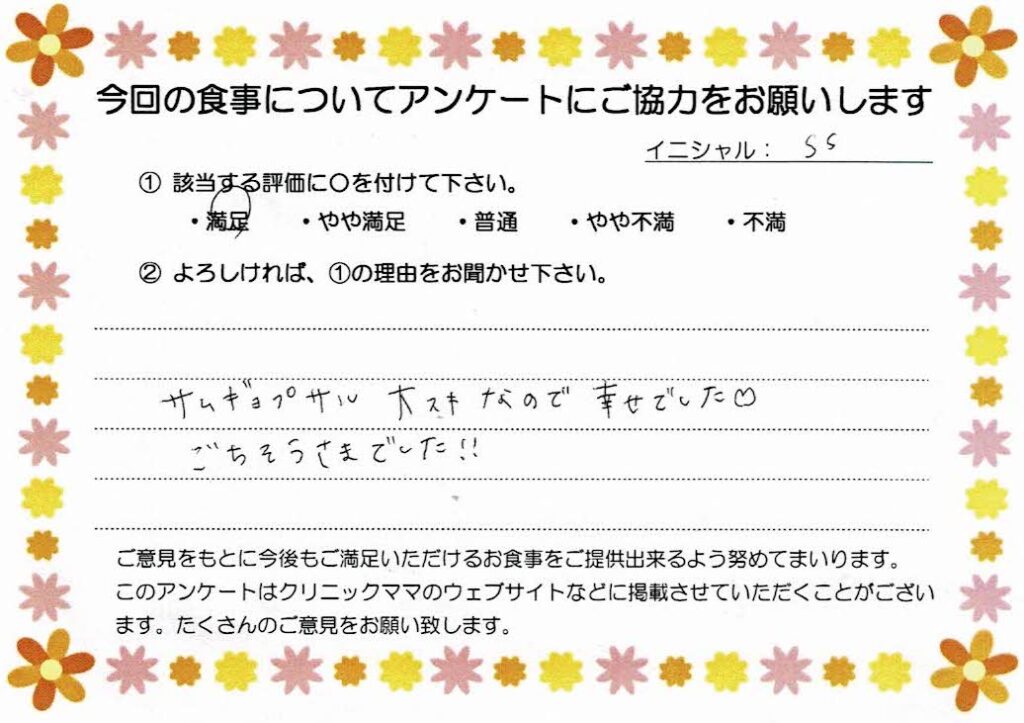 今回の食事についてアンケートにご協力をお願いします
イニシャル： SS
① 該当する評価に〇を付けて下さい。
・満足 ・やや満足 ・普通 ・やや不満 ・不満
② よろしければ、①の理由をお聞かせ下さい。
サムギョプサル 大スキ なので 幸せでした♡
ごちそうさまでした!!
ご意見をもとに今後もご満足いただけるお食事をご提供出来るよう努めてまいります。
このアンケートはクリニックママのウェブサイトなどに掲載させていただくことがござい
ます。たくさんのご意見をお願い致します。